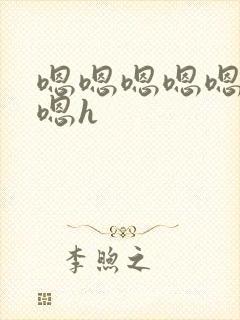 嗯嗯嗯嗯嗯
嗯h
李煦之